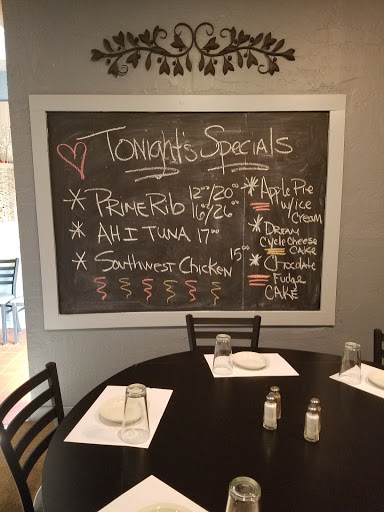 Tonight's Specials
* PRIME RIB 12oz/20.00
16oz/26.00
* AHI TUNA 17.00
* Southwest Chicken 15.00
* Apple Pie
w/ice
Cream
* DREAM
Cycle Cheese
CAKE
* Chocolate
Fudge
CAKE